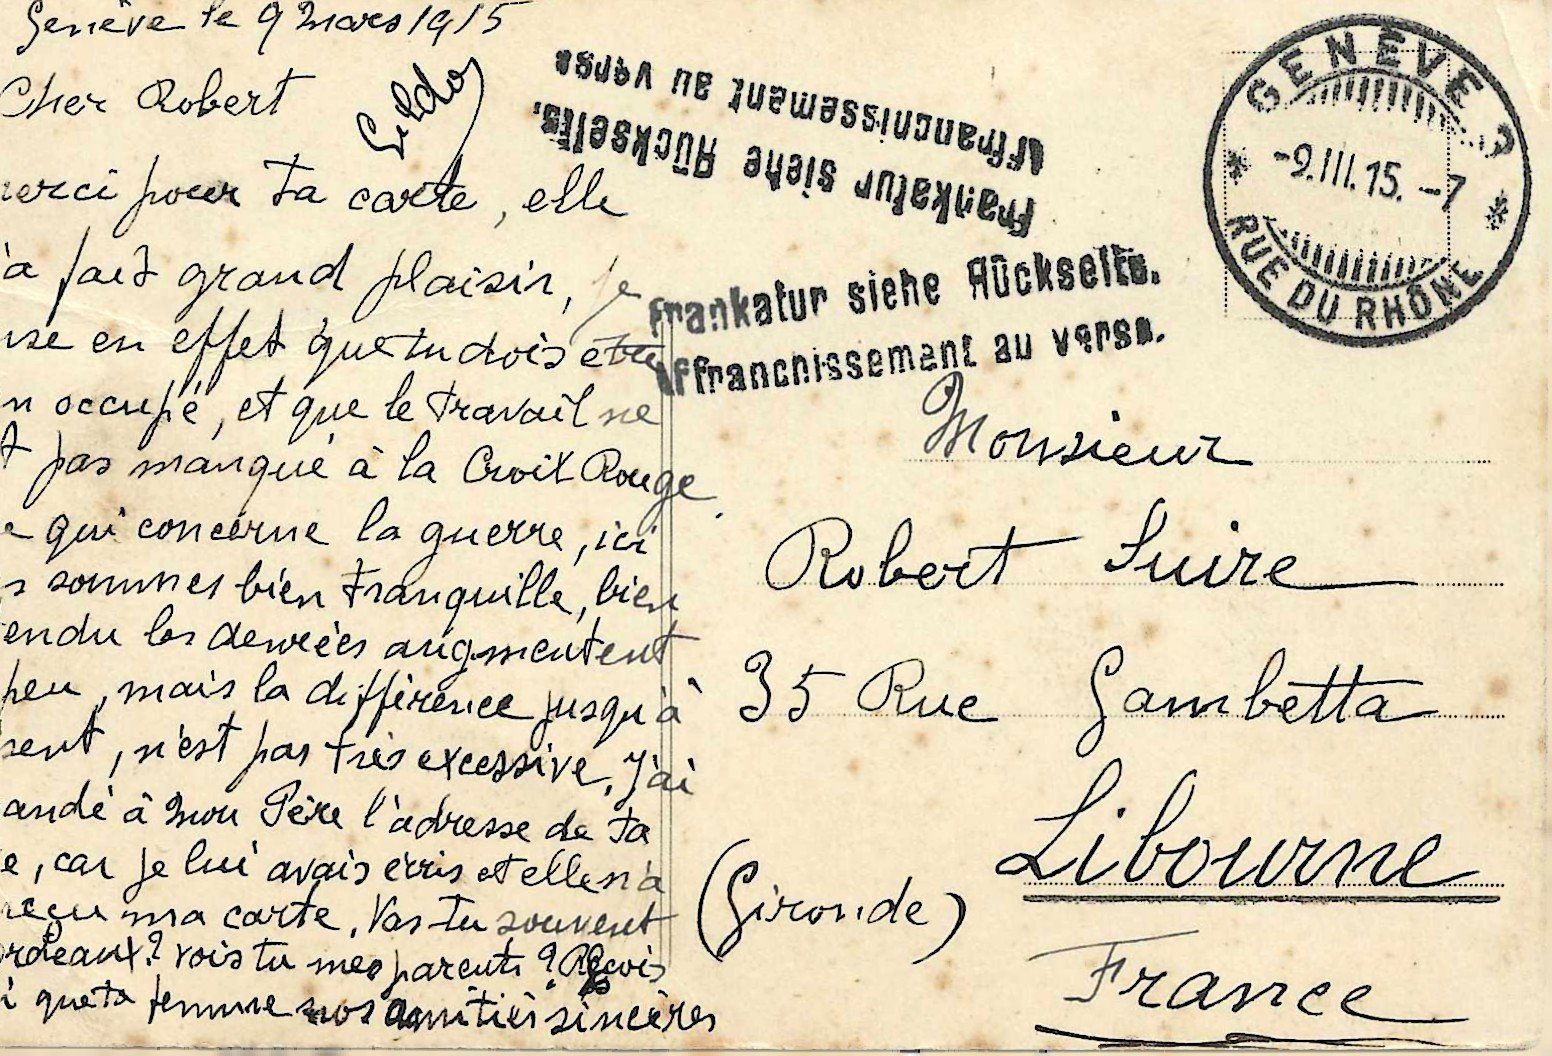 Genève le 9 mars 1915
Cher Robert
Gildo
erci pour ta carte, elle
'a fait grand plaisir, je
nse en effet que tu dois être
n occupé, et que le travail ne
t pas manqué à la Croix Rouge.
e qui concerne la guerre, ici
s sommes bien tranquille, bien
endu les denrées augmentent
peu, mais la différence jusqu'à
sent, n'est pas très excessive. J'ai
andé à mon Père l'adresse de ta
e, car je lui avais écris et elle n'a
reçu ma carte. Vas tu souvent
ordeaux? Vois tu mes parents? Reçois
i que ta femme nos amitiés sincères
Frankatur siehe Rückseite.
Affranchissement au verso
Frankatur siehe Rückseite.
Affranchissement au verso.
GENÈVE
-9.III.15.-7
RUE DU RHÔNE
Monsieur
Robert Suire
35 Rue Gambetta
Libourne
(Gironde)
France